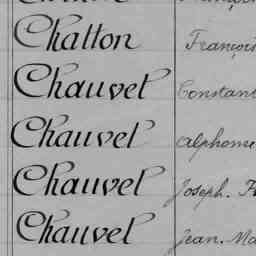 Chatton François
Chauvet Constant
Chauvet Alphonse
Chauvet Joseph. F
Chauvet Jean. Ma